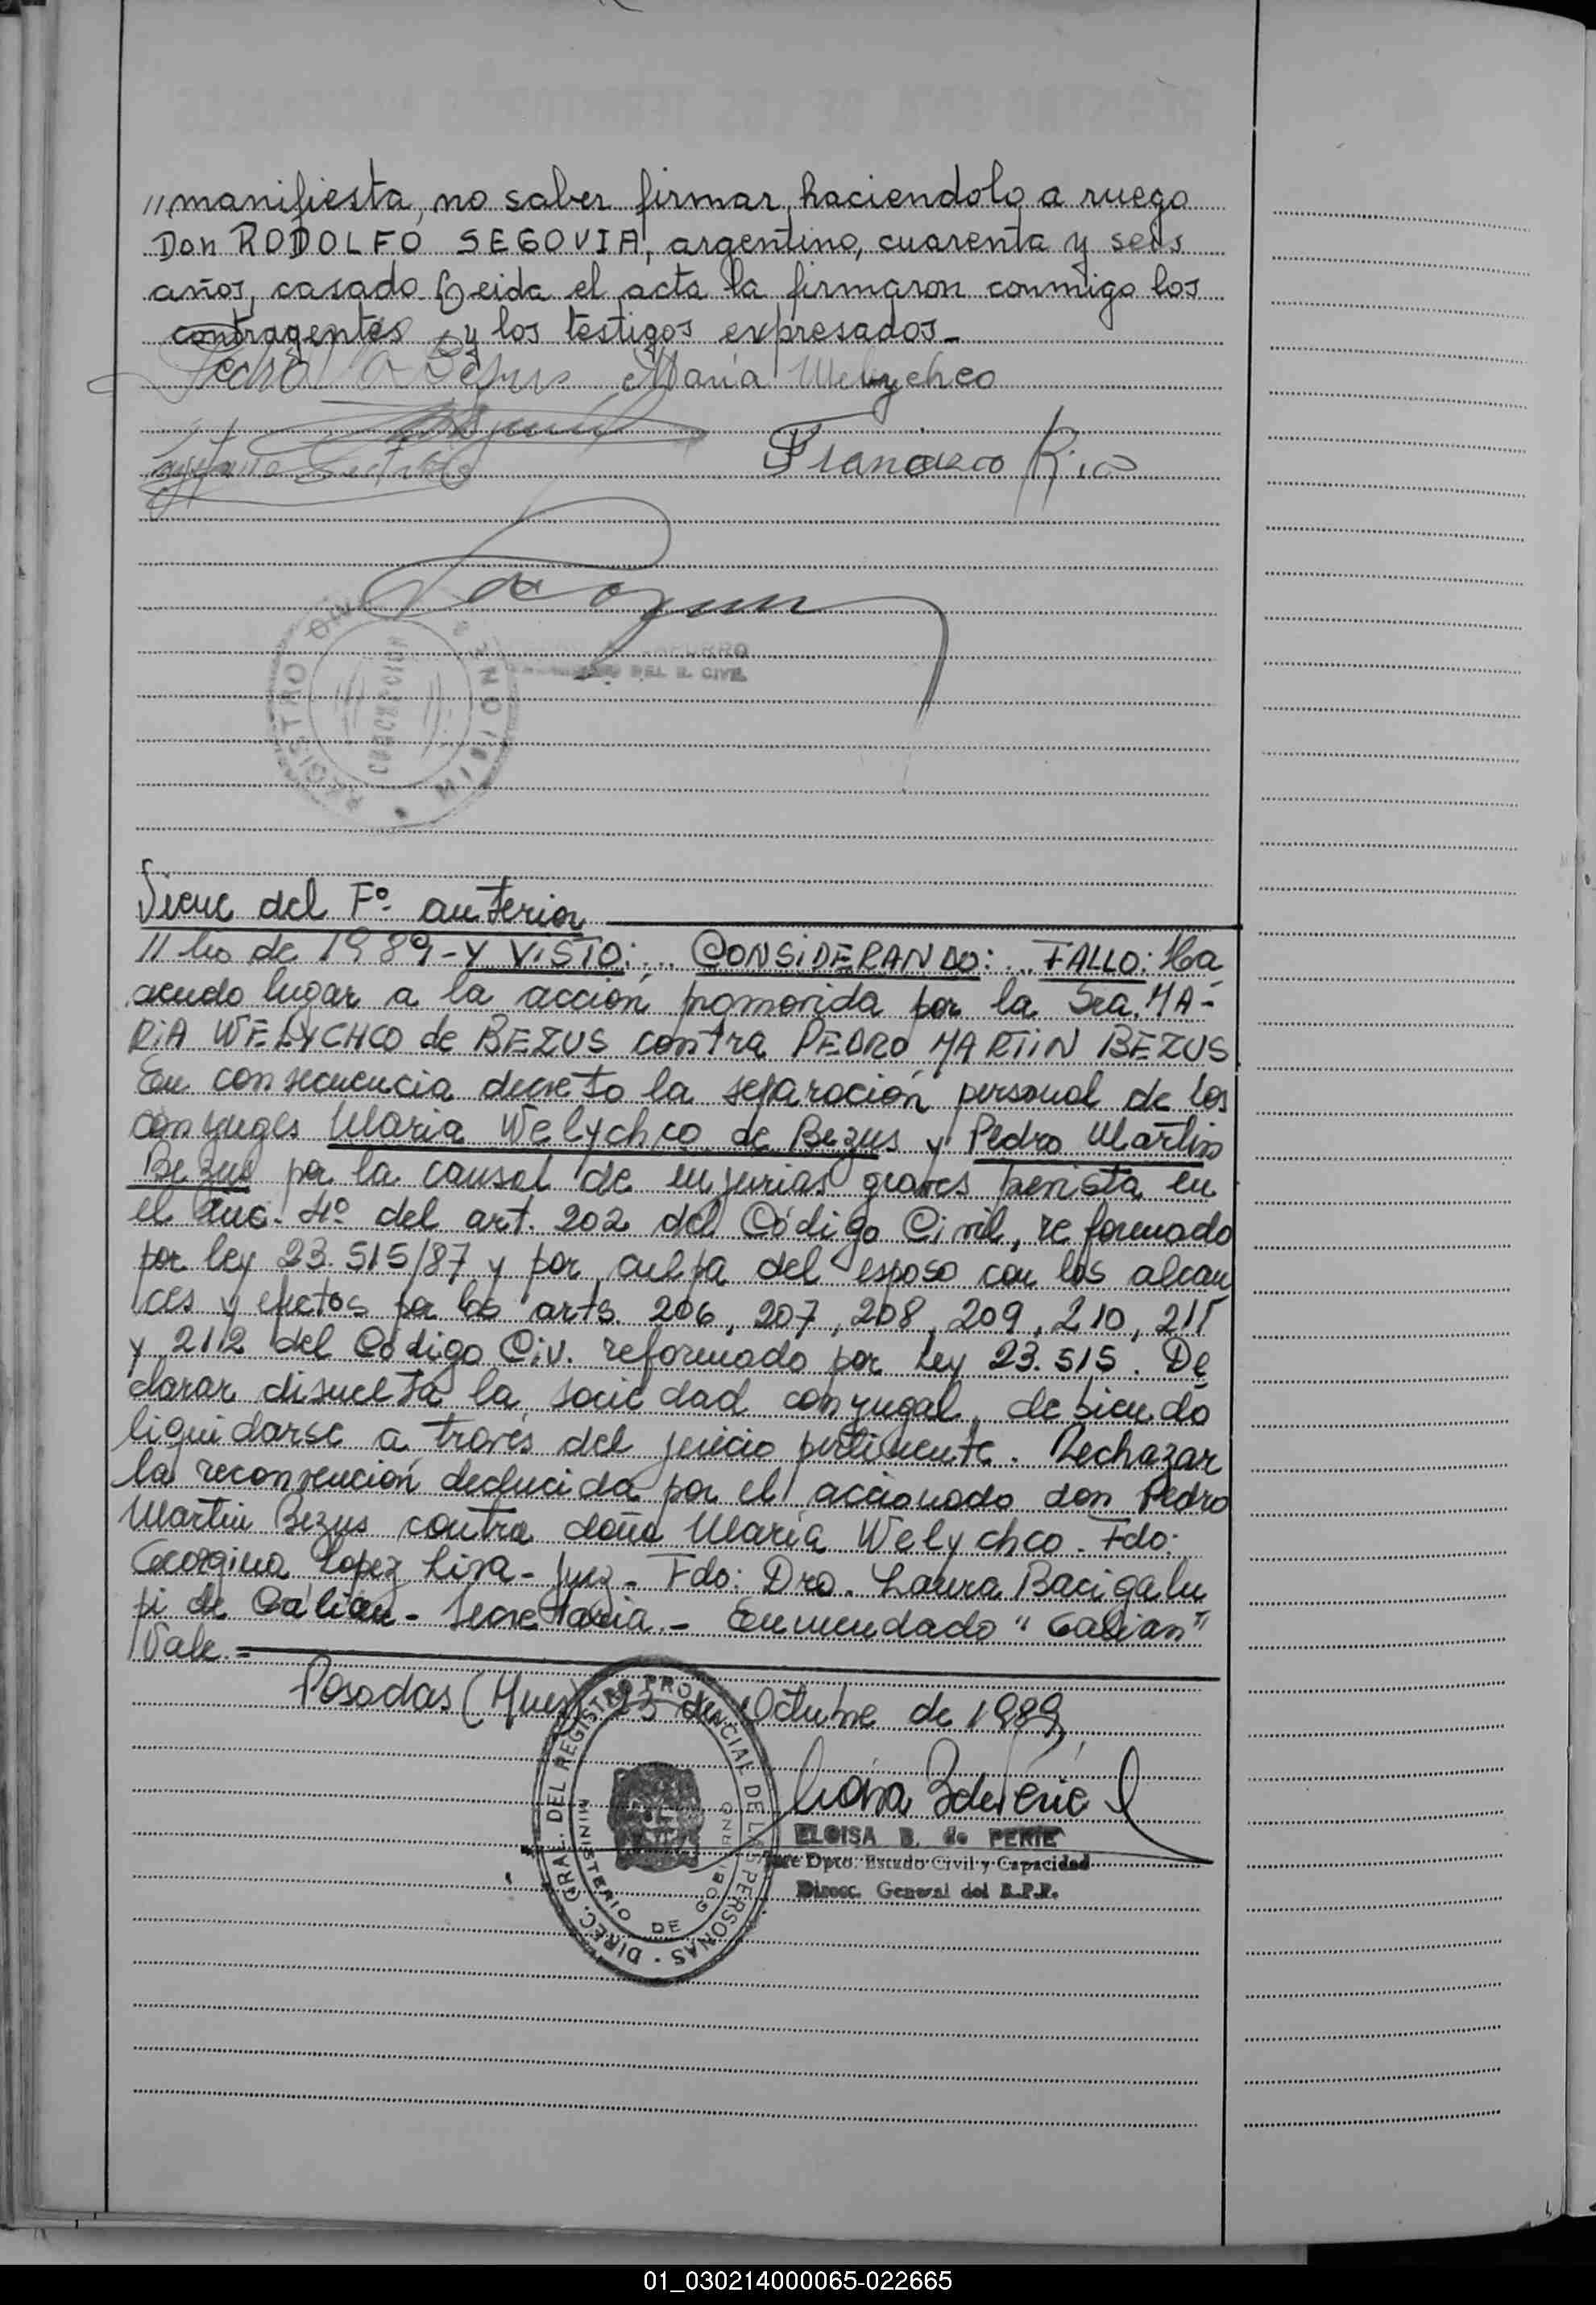 //manifiesta, no saber firmar, haciendolo a ruego
Don RODOLFO SEGOVIA, argentino, cuarenta y seis
años, casado. Leida el acta la firmaron conmigo los
contragentes y los testigos expresados.-
Pedro M Bezus Maria Welychco
Francisco Rios
DEL R. CIVIL
REGISTRO MISIONES
Viene del Fº anterior
//lio de 1989-Y VISTO:... CONSIDERANDO:... FALLO: Ha
ciendo lugar a la acción promovida por la Sra. MA-
RIA WELYCHCO de BEZUS contra PEDRO MARTIN BEZUS
En consecuencia decreto la separación personal de los
conyuges Maria Welychco de Bezus y Pedro Martin
Bezus por la causal de injurias graves prevista en
el Inc. 4º del art. 202 del Código Civil, reformado
por ley 23.515/87 y por culpa del esposo con los alcan
ces y efectos por los arts. 206, 207, 208, 209, 210, 211
y 212 del Código Civ. reformado por Ley 23.515. De
clarar disuelta la sociedad conyugal, debiendo
liquidarse a través del juicio pertinente. Rechazar
la reconvención deducida por el accionado don Pedro
Martin Bezus contra doña Maria Welychco. Fdo:
Georgina Lopez Liva- Juez- Fdo: Dra. Laura Bacigalu
pi de Galian- Secretaria.- Enmendado "Galian"
Vale.-
Posadas (Mnes) 23 de Octubre de 1989,
DIREC. GRAL. DEL REGISTRO PROVINCIAL DE LAS PERSONAS
MINISTERIO DE GOBIERNO
ELOISA B. de PERIE
Jefe Dpto. Estado Civil y Capacidad
Direcc. General del R.P.P.
01_030214000065-022665